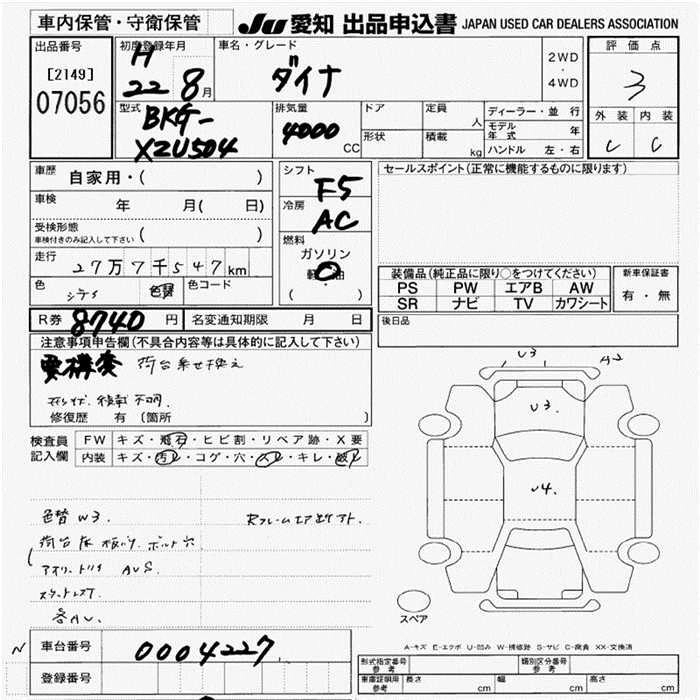 車内保管・守衛保管
JU 愛知 出品申込書 JAPAN USED CAR DEALERS ASSOCIATION
出品番号
[2149]
07056
初度登録年月
H
22 8月
車名・グレード
ダイナ
2WD
・
4WD
評価点
3
外装 内装
C C
型式
BKG-
XZU504
排気量
4000 CC
ドア
形状
定員 人
積載 kg
ディーラー・並行
モデル年式 年
ハンドル 左・右
車歴 自家用・( )
車検 年 月( 日)
受検形態
車検付きのみ記入して下さい ( )
走行 27万7千547km
色 色替 色コード
シフト
F5
冷房
AC
燃料
ガソリン
軽油
( )
セールスポイント(正常に機能するものに限ります)
装備品(純正品に限り○をつけてください)
PS PW エアB AW
SR ナビ TV カワシート
新車保証書
有・無
R券 8740 円 名変通知期限 月 日
後日品
注意事項申告欄(不具合内容等は具体的に記入して下さい)
要構変 荷台乗せ換え
不明.
修復歴 有 〔箇所 〕
検査員
記入欄
FW キズ・飛石・ヒビ割・リペア跡・X要
内装 キズ・汚レ・コゲ・穴・スレ・キレ・破レ
U3 A2
U3.
U4.
色替 W3.
荷台床 ボルト穴.
AVS.
スペア
A-キズ E-エクボ U-凹み W-補修跡 S-サビ C-腐食 XX-交換済
N
車台番号 0004227
登録番号
型式指定番号
参考
類別区分番号
参考
車庫証明用
参考
長さ cm 幅 cm 高さ cm